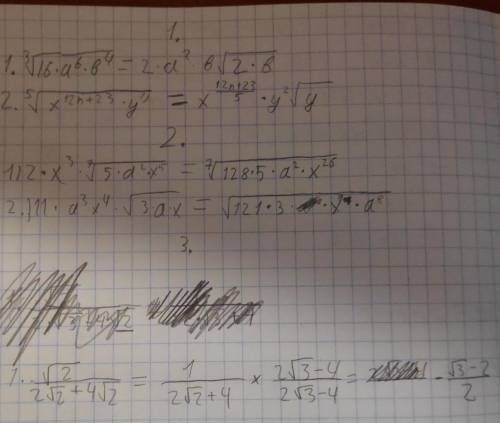 1.
1. ∛(16·a⁶·в⁴) = 2·a²·в√(2·в)
2. ⁵√(x¹²ⁿ⁺²³·y¹¹) = x^((12n+23)/5)·y²√y
2.
1) 2·x³·⁷√(5·a²·x⁵) = ⁷√(128·5·a²·x²⁶)
2.) 11·a³x⁴·√(3·a·x) = √(121·3·x⁹·a⁸)
3.
1. √2/(2√2+4√2) = 1/(2√2+4) × (2√3-4)/(2√3-4) = -(√3-2)/2